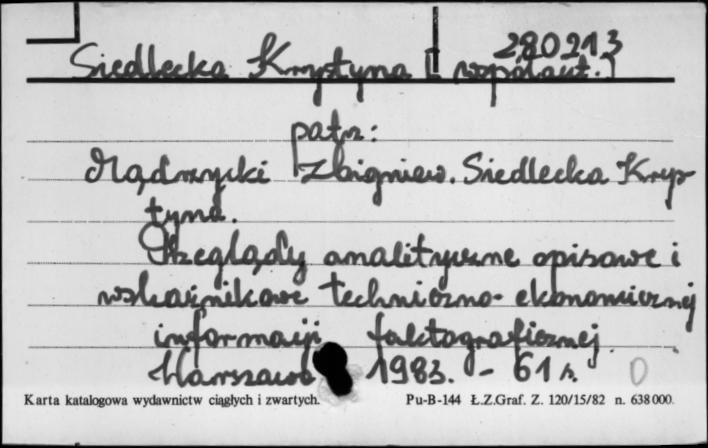 280213
Siedlecka Krystyna [współaut.]
patrz:
Mądrzycki Zbigniew. Siedlecka Krys-
tyna.
Przeglądy analityczne opisowe i
wskaźnikowe techniczno-ekonomicznej
informacji faktograficznej
Warszawa 1983. - 61 s. 0
Karta katalogowa wydawnictw ciągłych i zwartych. Pu-B-144 Ł.Z.Graf. Z. 120/15/82 n. 638 000.